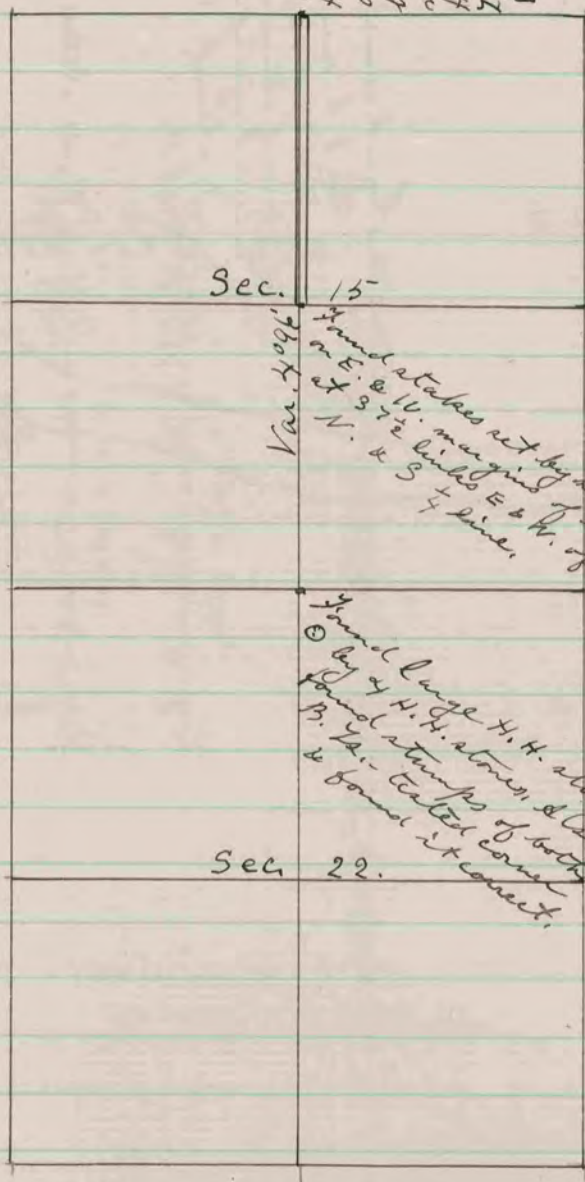 Sec. 15
Var. 4°
Found stakes set by
on E. & W. margins of
at 37 ½ links E & W. of
N. & S ¼ line.
Found large H. H.
⊙ by 4 H. H. stones,
found stumps of both
B. Ts. - tested corner
& found it correct.
Sec. 22.